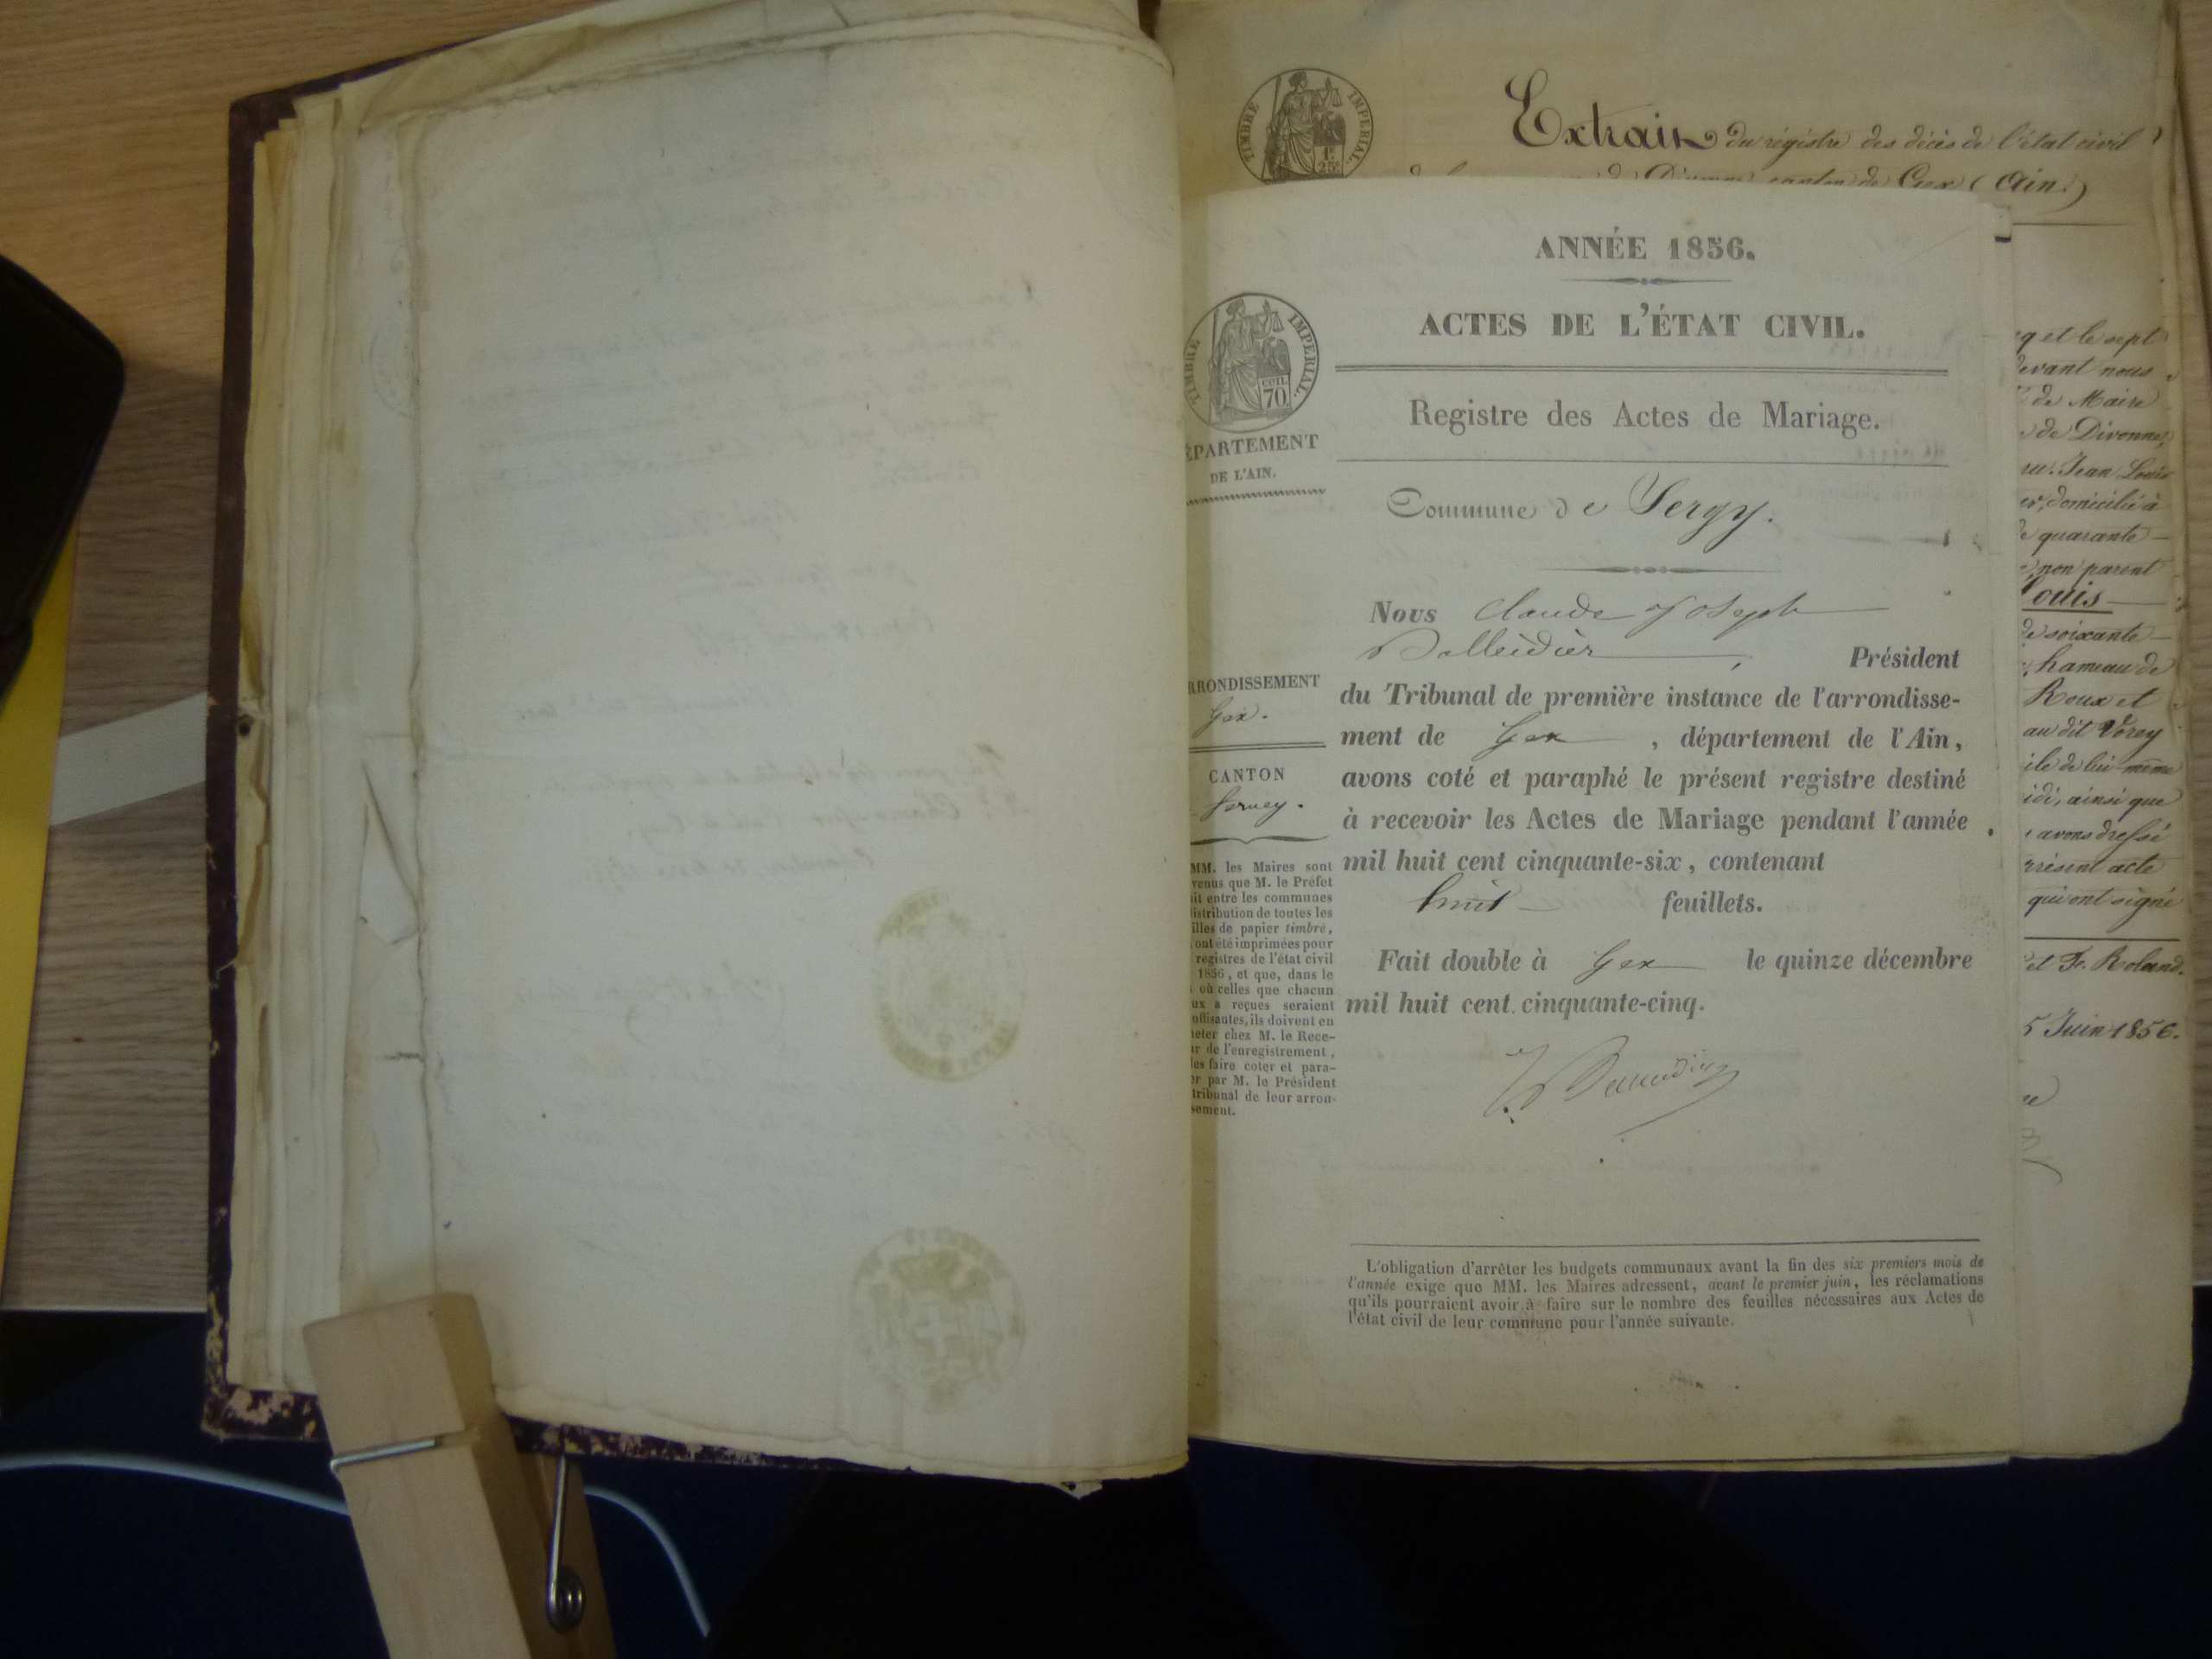 TIMBRE IMPERIAL.
1F 25c
Extrait du régistre des décès de l'état civil
canton de Gex (Ain)
ANNÉE 1856.
ACTES DE L'ÉTAT CIVIL.
Registre des Actes de Mariage.
Commune de Sergy.
TIMBRE IMPERIAL.
CEN. 70
ÉPARTEMENT
DE L'AIN.
RRONDISSEMENT
Gex.
CANTON
ferney.
MM. les Maires sont
venus que M. le Préfet
it entre les communes
istribution de toutes les
illes de papier timbré,
ont été imprimées pour
registres de l'état civil
1856, et que, dans le
où celles que chacun
ux a reçues seraient
uffisantes, ils doivent en
heter chez M. le Rece-
ur de l'enregistrement,
les faire coter et para-
er par M. le Président
tribunal de leur arron-
sement.
Nous Claude Joseph
Balleidier, Président
du Tribunal de première instance de l'arrondisse-
ment de Gex, département de l'Ain,
avons coté et paraphé le présent registre destiné
à recevoir les Actes de Mariage pendant l'année
mil huit cent cinquante-six, contenant
huit feuillets.
Fait double à Gex le quinze décembre
mil huit cent cinquante-cinq.
L'obligation d'arrêter les budgets communaux avant la fin des six premiers mois de
l'année exige que MM. les Maires adressent, avant le premier juin, les réclamations
qu'ils pourraient avoir à faire sur le nombre des feuilles nécessaires aux Actes de
l'état civil de leur commune pour l'année suivante.
q et le sept
devant nous
de Maire
de Divonne,
Jean Louis
domicilié à
de quarante
non parent
ouis
de soixante
hameau de
Roux et
au dit Vésey
ile de lui même
idi, ainsi que
avons dressé
présent acte
qui ont signé
et F. Roland.
5 Juin 1856.